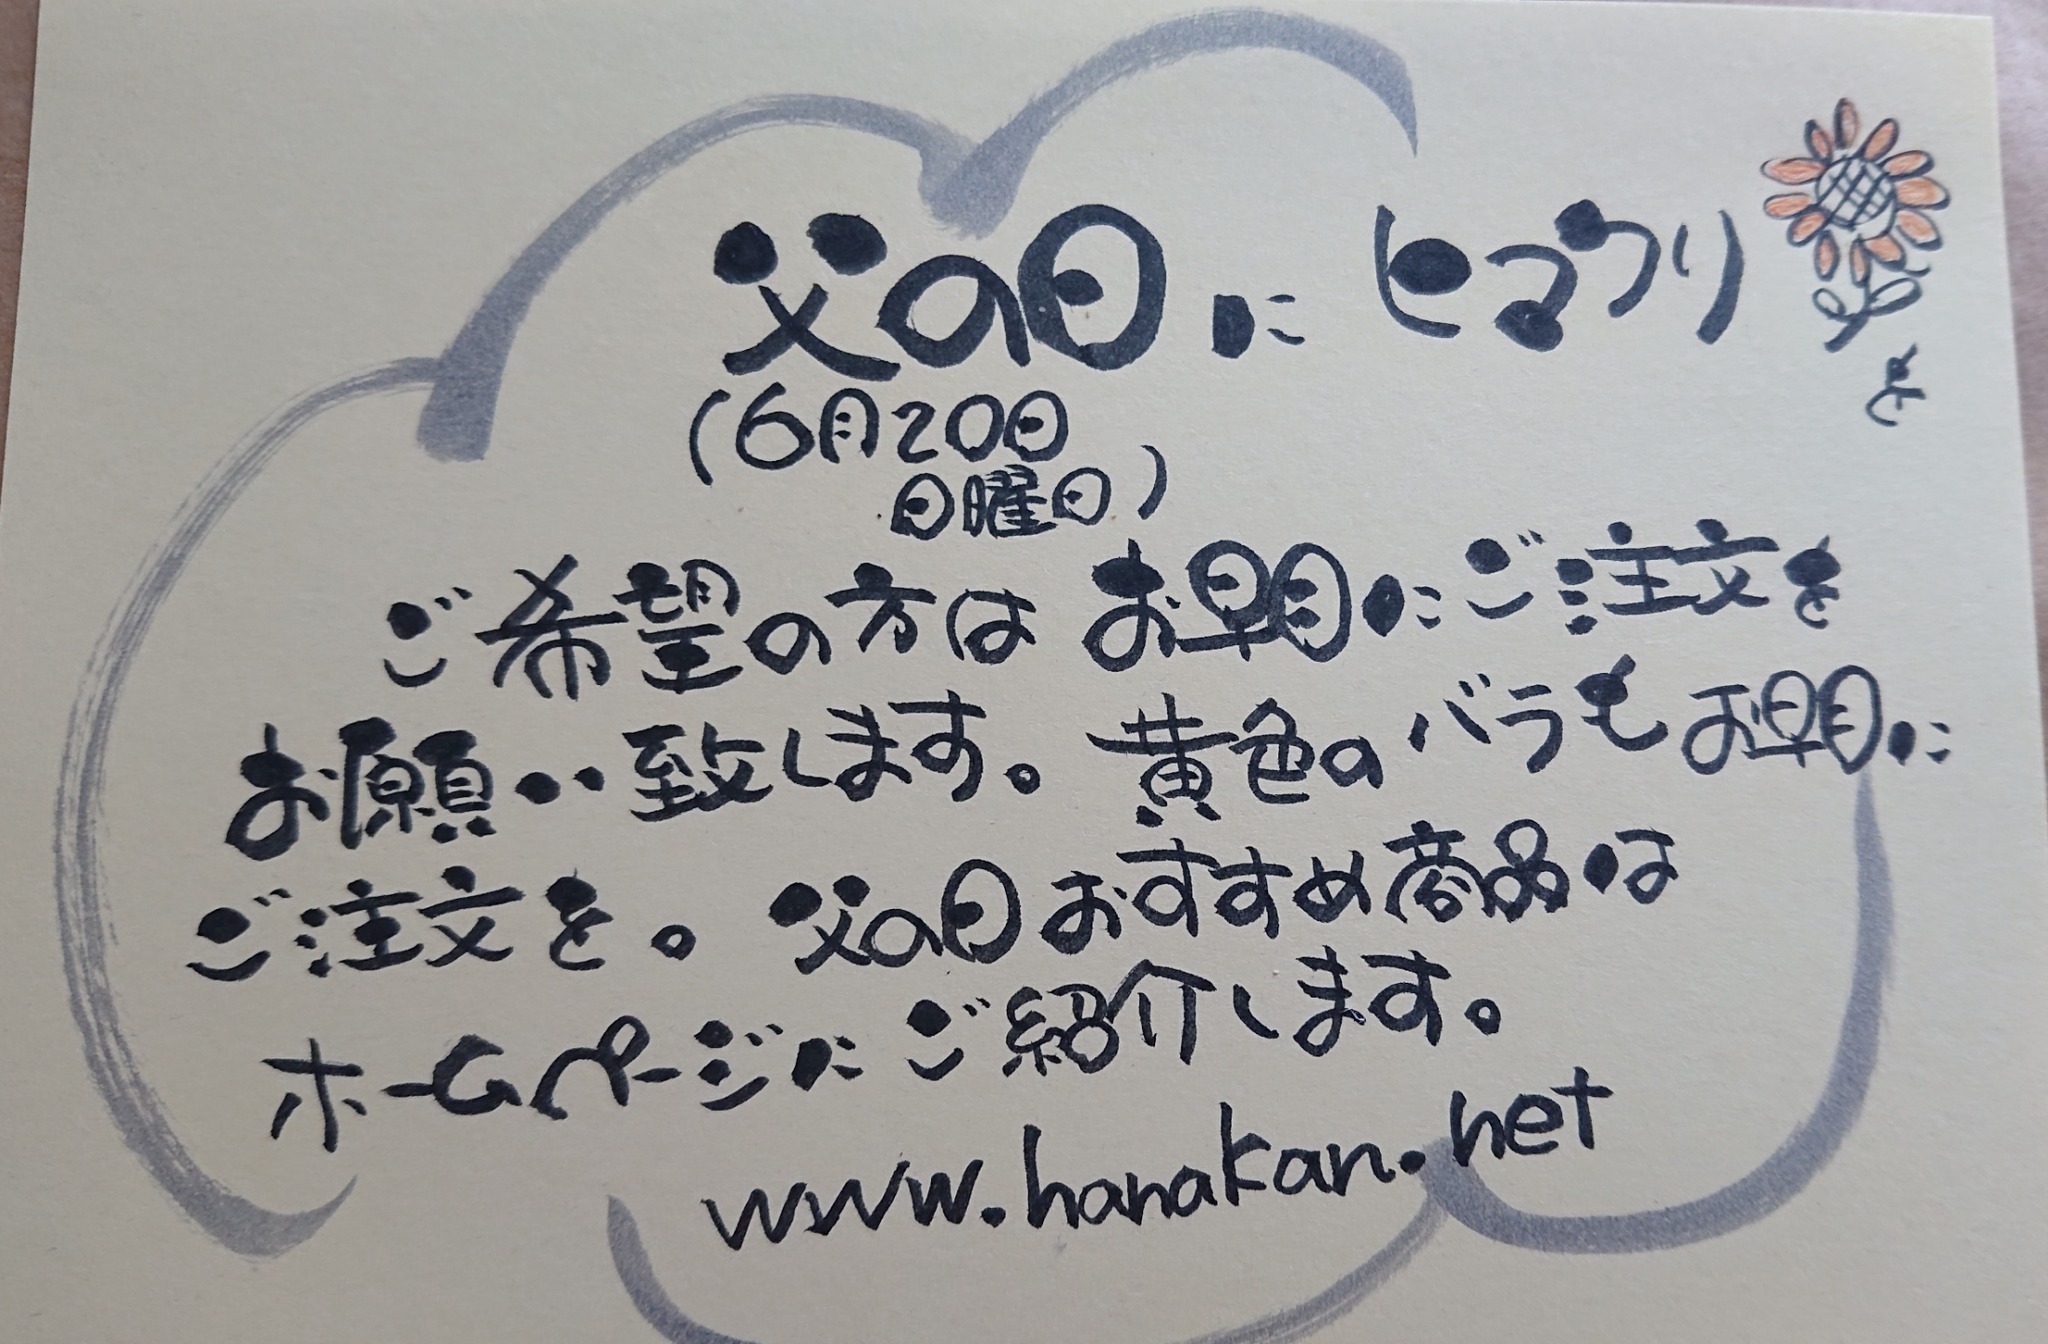 父の日に ヒマワリを
(6月20日
日曜日)
ご希望の方は お早目にご注文を
お願い致します。黄色のバラもお早目に
ご注文を。父の日おすすめ商品は
ホームページにご紹介します。
www.hanakan.net